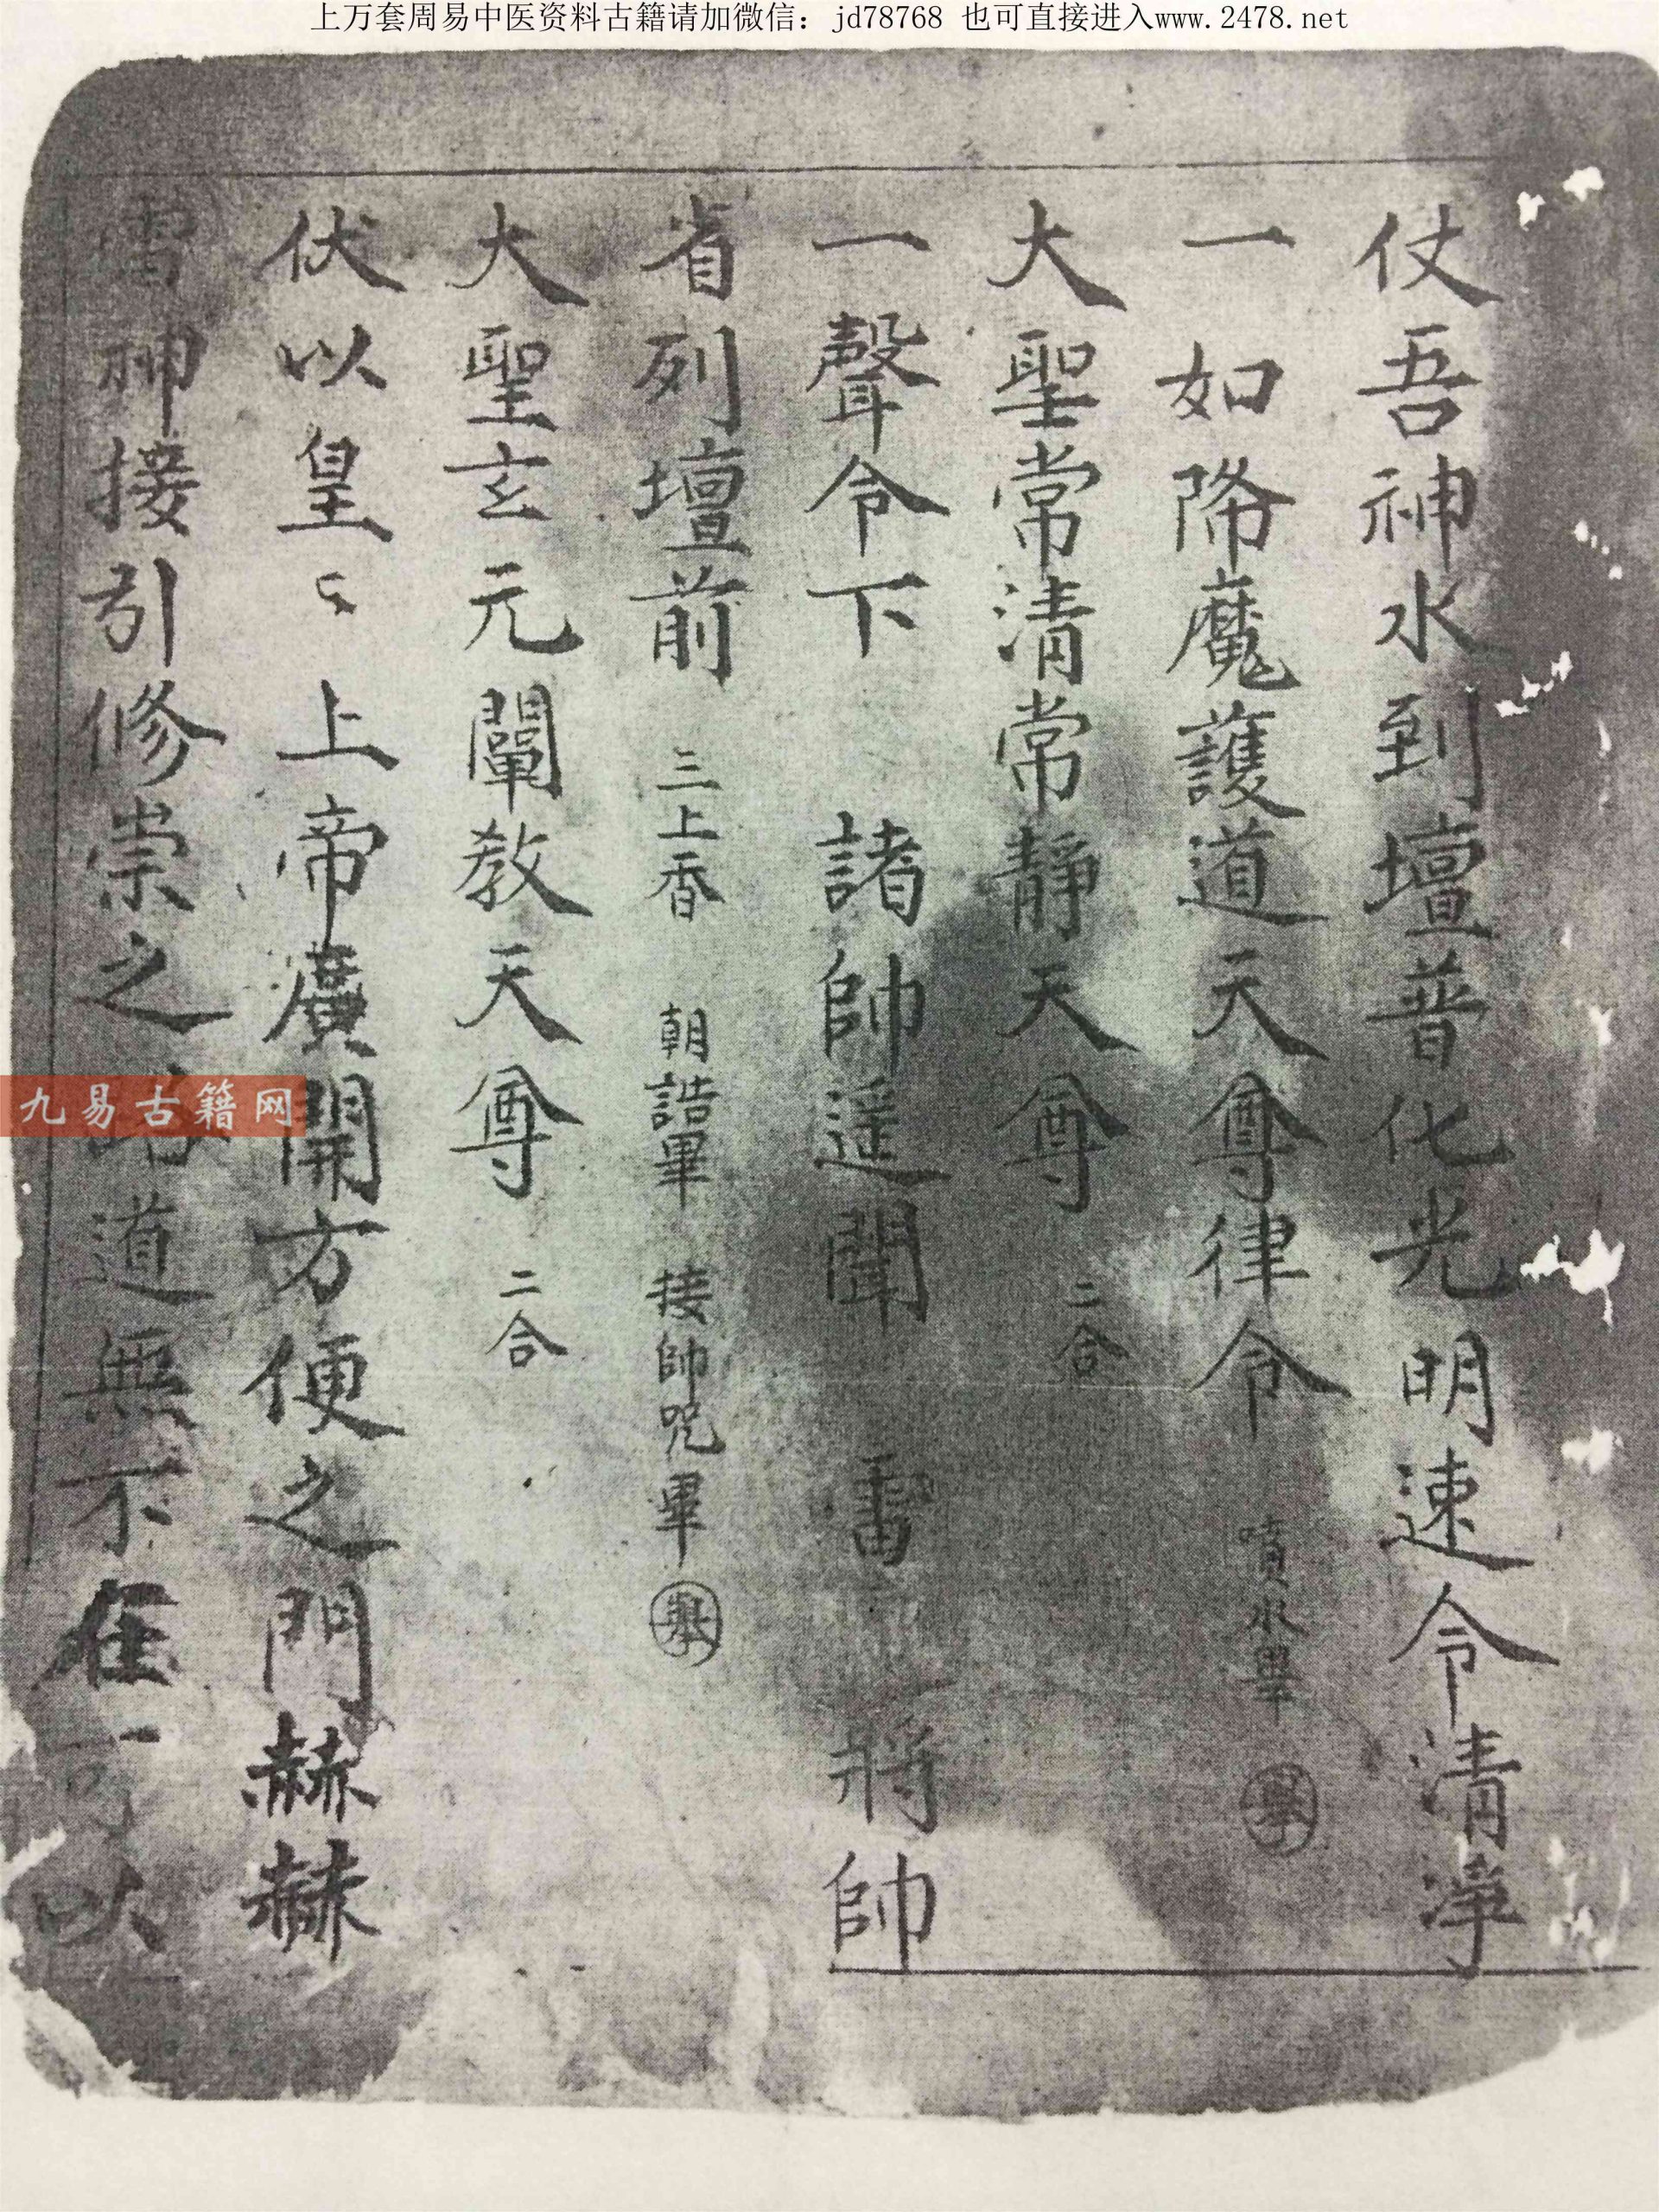 上万套周易中医资料古籍请加微信：jd78768 也可直接进入www.2478.net
仗吾神水到壇普化光明速令清淨
一如降魔護道天尊律令 噴水畢 舉
大聖常清常靜天尊 二合
一聲令下 諸帥遥聞 雷 将帥
省列壇前 三上香 朝誥畢 接帥咒畢 舉
大聖玄元闡教天尊 二合
伏以皇〻上帝廣開方便之門赫赫
神接引修崇之路道無不在 以
九易古籍网